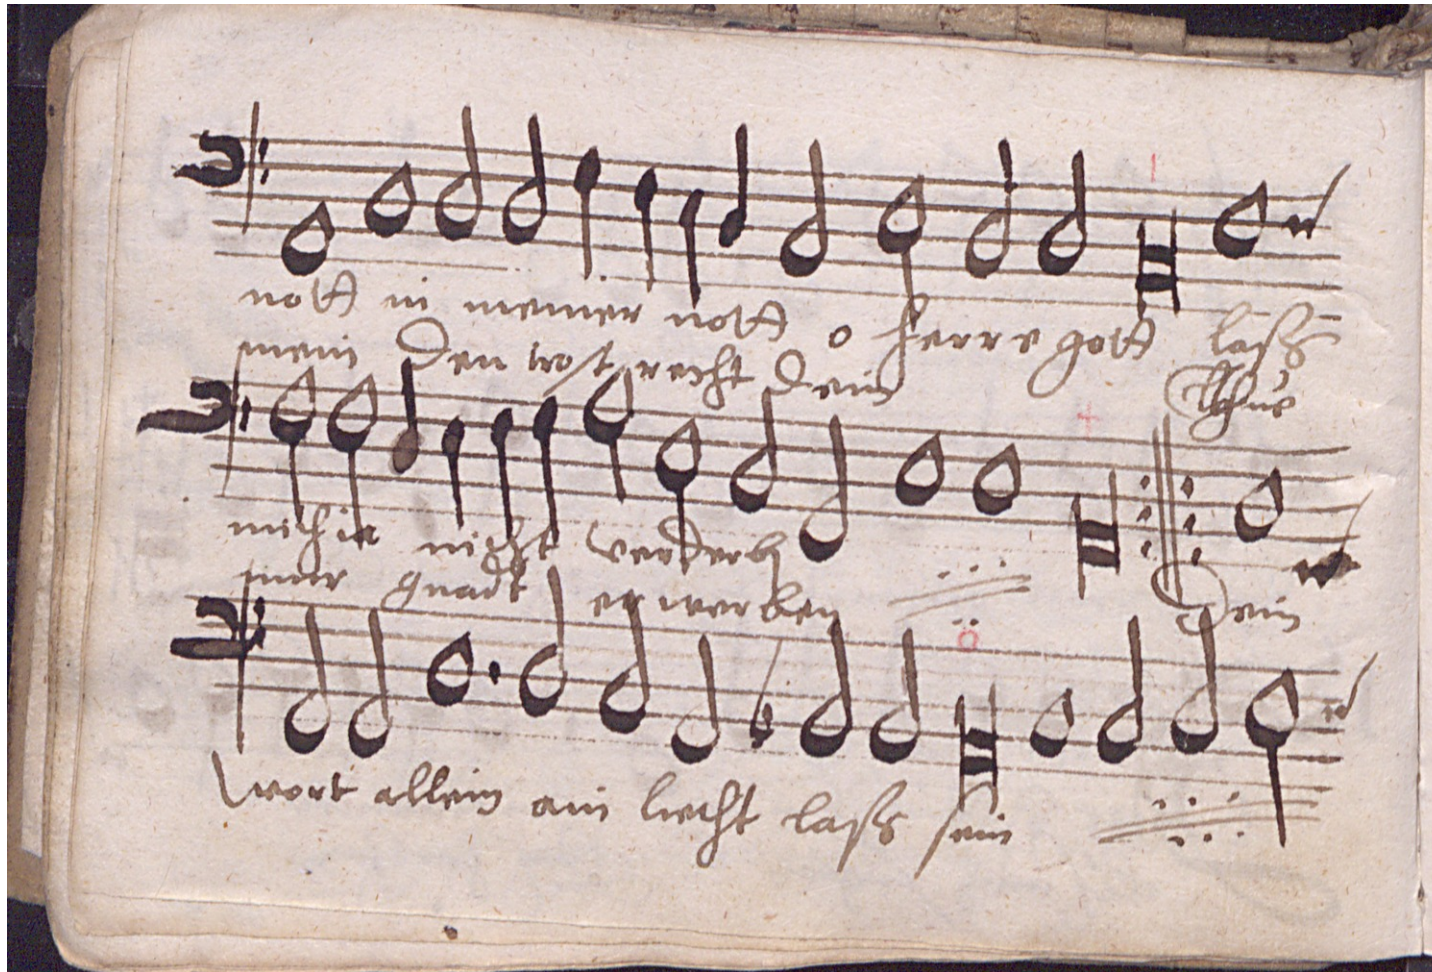 nott in meiner nott o herre gott lass
mein den trost recht dein
mich ia nicht verderb
mir gnadt erwerben Dein
wort allein ain liecht lass sein